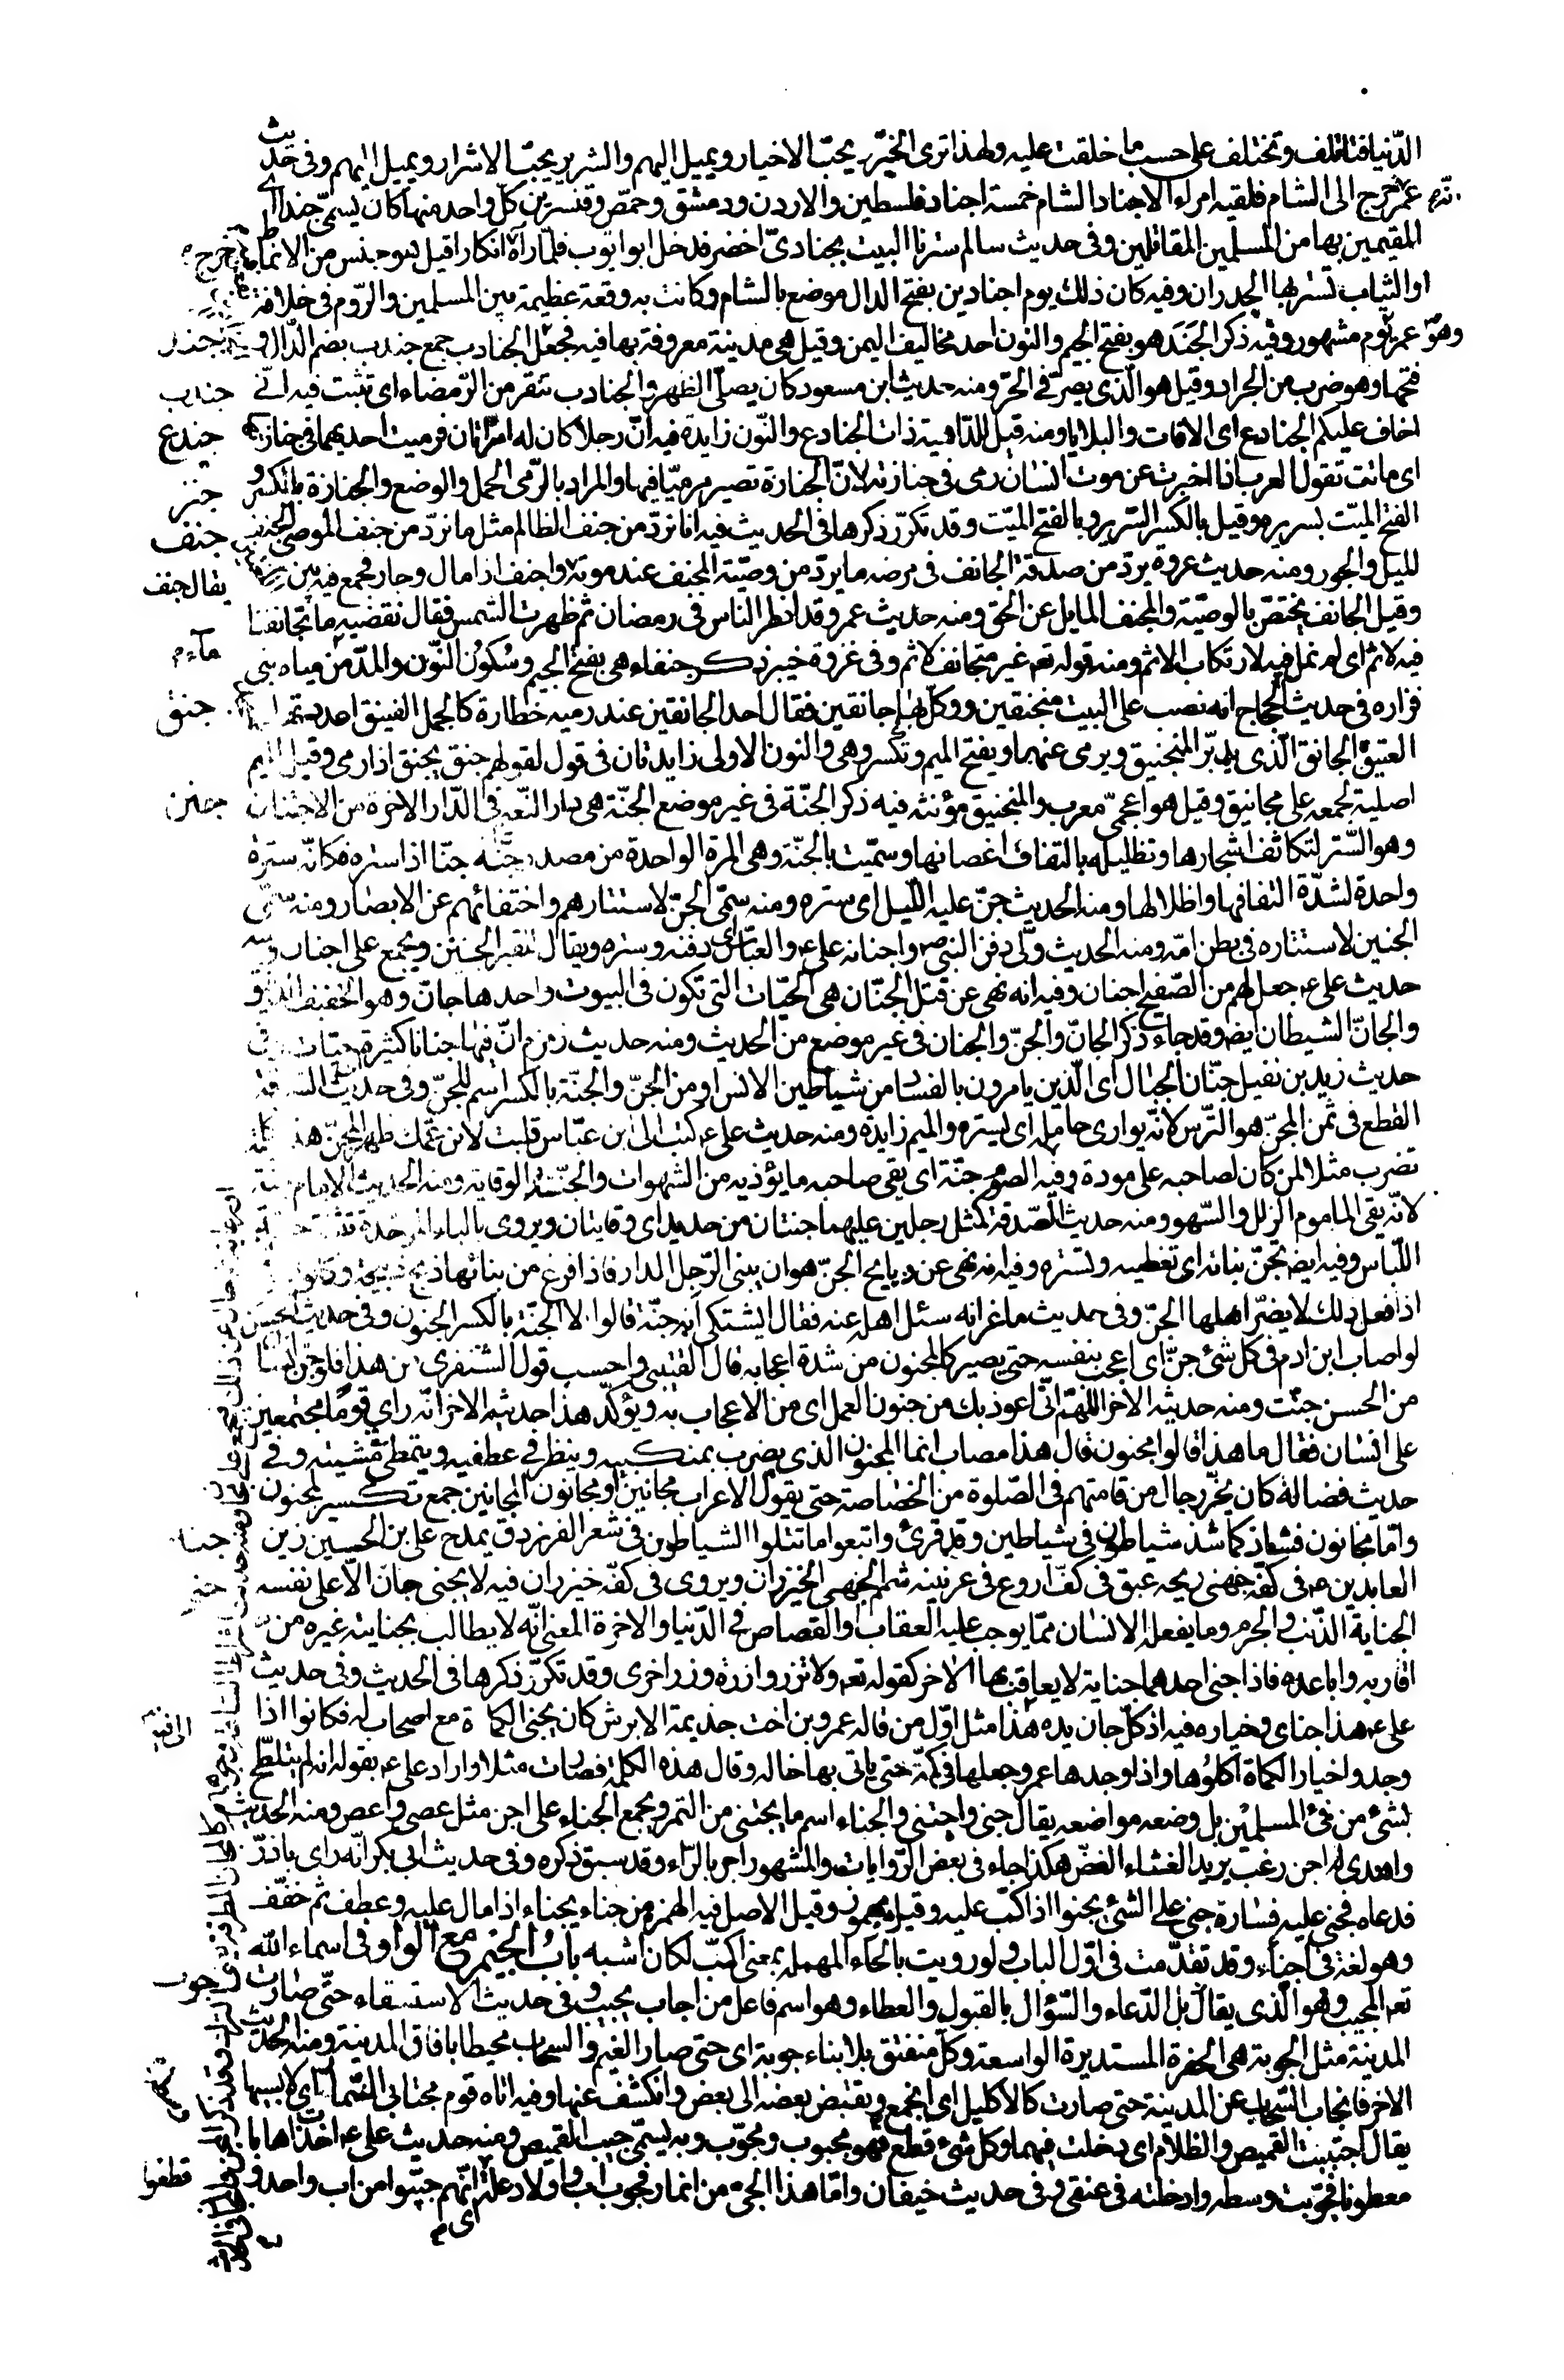 الدّنيا فتاتلف وتختلف على حسب ما خلقت عليه ولهذا ترى الخيّر يحبّ الاخيار ويميل اليهم والشرير يحبّ الاشرار ويميل اليهم وفى حديث
عمر خرج الى الشام فلقيه امراء الاجناد الشام خمسة اجناد فلسطين والاردن ودمشق وحمص وقنسرين كل واحد منها كان يسمّى جندا اى
المقيمين بها من المسلمين المقاتلين وفى حديث سالم سترنا البيت بجنادىّ اخضر فدخل ابو ايّوب فلمّا رآه انكارا قيل هو جنس من الانماط
او الثياب تستر بها الجدران وفيه كان ذلك يوم اجنادين بفتح الدال موضع بالشام وكانت به وقعة عظيمة بين المسلمين والرّوم فى خلافة
عمر وهو يوم مشهور وفيه ذكر الجَنَد هو بفتح الجيم والنون احد مخاليف اليمن وقيل هى مدينة معروفة بها فيه فجعل الجنادب جمع جندب بضم الدّال و
فتحها وهو ضرب من الجراد وقيل هو الّذى يصرّ فى الحرّ ومنه حديث ابن مسعود كان يصلّى الظهر والجنادب تنقز من الرّمضاء اى تثب فيه انّى
اخاف عليكم الجنادع اى الافات والبلايا ومنه قيل للدّاهية ذات الجنادع والنّون زايدة فيه انّ رجلا كان له امرأتان فرميت احديهما فى جنازتها
اى ماتت تقول العرب اذا اخبرت عن موت انسان رمى فى جنازته لانّ الجنازة تصير مرميّا فيها والمراد بالرّمى الحمل والوضع والجنازة بالكسر و
الفتح الميّت بسريره وقيل بالكسر السّرير وبالفتح الميّت وقد تكرّر ذكرها فى الحديث فيه انا نردّ من جنف الظالم مثل ما نردّ من جنف الموصى الجنف
الميل والجور ومنه حديث عروة يردّ من صدقة الجانف فى مرضه ما يردّ من وصيّة المجنف عند موته واجنف اذا مال وجار فجمع فيه بين
وقيل الجانف يختصّ بالوصيّة والمجنف المايل عن الحق ومنه حديث عمر وقد افطر الناس فى رمضان ثم ظهرت الشمس فقال نقضيه ما تجانفنا
فيه لاثم اى لم نمل فيه لارتكاب الاثم ومنه قوله تعم غير متجانف لاثم وفى غزوة خيبر ذكر جنفاء هى بفتح الجيم وسكون النّون والمدّ من مياه بنى
فزاره فى حديث الحجاج انه نصب على البيت منجنقين ووكل بهما جانقين فقال احد الجانقين عند رميه خطارة كالجمل الفنيق
الجانق الّذى يدبّر المنجنيق ويرمى عنها ويفتح الميم وتكسر وهى والنون الاولى زايدتان فى قول لقولهم جنق يجنق اذا رمى وقيل الميم
اصلية لجمعه على مجانيق وقيل هو اعجمىّ معرب والمنجنيق مؤنثه فيه ذكر الجنّة فى غير موضع الجنّة هى دار النّعيم فى الدّار الاخرة من الاجتنان
وهو السّتر لتكاثف اشجارها وتظليلها بالتفاف اغصانها وسمّيت بالجنّة وهى المرة الواحدة من مصدر جنّه جنّا اذا ستره فكانّه سترة
واحدة لشدّة التفافها واظلالها ومنه الحديث جنّ عليه اللّيل اى ستره ومنه سمّى الجنّ لاستتارهم واختفائهم عن الابصار ومنه سمّى
الجنين لاستتاره فى بطن امّه ومنه الحديث ولّى دفن النبىّ واجنانه على والعبّاس اى دفنه وستره ويقال للقبر الجنن ويجمع على اجنان ومنه
حديث على جعل لهم من الصّفيح اجنان وفيه انه نهى عن قتل الجنّان هى الحيّات التى تكون فى البيوت واحدها جانّ وهو الخفيف الدّقيق
والجانّ الشيطان ايضا وقد جاء ذكر الجانّ والجنّ والجنان فى غير موضع من الحديث ومنه حديث زمزم انّ فيها جنانا كثيرة حيّات وفى
حديث زيد بن نفيل جنّان الجبال اى الّذين يامرون بالفساد من شياطين الانس او من الجنّ والجنّة بالكسر اسم للجنّ وفى حديث السرقة
القطع فى ثمن المجنّ هو التّرس لانّه يوارى حامله اى يستره والميم زايدة ومنه حديث على كتب الى ابن عبّاس قلبت لابن عمّك ظهر المجنّ هذه كلمة
تضرب مثلا لمن كان لصاحبه على مودة وفيه الصوم جنّة اى يقى صاحبه ما يؤذيه من الشهوات والجنّة الوقاية ومنه الحديث الامام جنّة
لانّه يقى الماموم الزلل والسّهو ومنه حديث الصّدقة كمثل رجلين عليهما جنتان من حديد اى وقايتان ويروى بالباء الموحّدة تثنية
اللّباس وفيه ايضا تجنّ بنانه اى تغطيه وتستره وفيه انه نهى عن ذبايح الجنّ هو ان يبنى الرّجل الدار فاذا فرغ من بنائها ذبح ذبيحة
اذا فعل ذلك لا يضرّ اهلها الجنّ وفى حديث ماعز انه سئل اهله عنه فقال ايشتكى ام به جنّة قالوا لا الجنّة بالكسر الجنون وفى حديث الحسن
لو اصاب ابن ادم فى كل شئ جنّ اى اعجب بنفسه حتى يصير كالمجنون من شدة اعجابه قال القتيبى واحسب قول الشنفرى من هذا
من الحسن جنّت ومنه حديثه الاخر اللّهمّ انّى اعوذ بك من جنون العمل اى من الاعجاب به ويؤكّد هذا حديثه الاخر انّه راى قوما مجتمعين
على انسان فقال ما هذا قالوا مجنون قال هذا مصاب انما المجنون الذى يضرب بمنكبيه وينظر فى عطفيه ويتمطى فى مشيته وفى
حديث فضالة كان يخرّ رجال من قامتهم فى الصّلوة من الخصاصة حتى يقول الاعراب مجانين او مجانون المجانين جمع تكسير لمجنون
وامّا مجانون فشاذ كما شذ شياطون فى شياطين وقد قرئ واتبعوا ما تتلوا الشياطون فى شعر الفرزدق يمدح على بن الحسين زين
العابدين فى كفّه جهنىّ ريحه عبق فى كفّ اروع فى عرنينه شمم الجهنى الخيزران ويروى فى كفّه خيزران فيه لا يجنى جان الّا على نفسه
الجناية الذّنب والجرم وما يفعله الانسان ممّا يوجب عليه العقاب او القصاص فى الدّنيا والاخرة المعنى انّه لا يطالب بجناية غيره من
اقاربه واباعده فاذا جنى احدهما جناية لا يعاقب بها الاخر كقوله تعم ولا تزر وازرة وزر اخرى وقد تكرّر ذكرها فى الحديث وفى حديث
على هذا جناى وخياره فيه اذ كلّ جان يده هذا مثل اوّل من قاله عمرو بن اخت جذيمة الابرش كان يجنى الكماة مع اصحاب له فكانوا اذا
وجدوا خيار الكماة اكلوها واذا وجدها عمر وجعلها فى كمّه حتى ياتى بها خاله وقال هذه الكلمة فصارت مثلا واراد على بقوله انه لم يتلطّخ
بشئ من فئ المسلمين بل وضعه مواضعه يقال جنى واجتنى والجناء اسم ما يجتنى من الثمر ويجمع الجناء على اجن مثل عصى واعص ومنه الحديث
واهدى له اجن رغب يريد القثاء الغضّ هكذا جاء فى بعض الرّوايات والمشهور اجر بالرّاء وقد سبق ذكره وفى حديث ابى بكر انّه راى باذرّ
فدعاه فجنى عليه فسارّه جنى على الشئ يجنوا اذا اكبّ عليه وقيل هو مهموز وقيل الاصل فيه الهمز من جناء يجناء اذا مال عليه وعطف ثم خفّف
وهو لغة فى اجناء وقد تقدّمت فى اوّل الباب ولو رويت بالحاء المهملة بمعنى اكبّ لكان اشبه باب الجيم مع الواو فى اسماء الله
تعم المجيب وهو الّذى يقابل الدّعاء والسّؤال بالقبول والعطاء وهو اسم فاعل من اجاب يجيب وفى حديث الاستسقاء حتّى صارت
المدينة مثل الجوبة هى الحفرة المستديرة الواسعة وكلّ منفتق بلا بناء جوبة اى حتى صار الغيم والسحاب محيطا بافاق المدينة ومنه الحديث
الاخر فانجاب السّحاب عن المدينة حتى صارت كالاكليل اى انجمع وتقبّض بعضه الى بعض وانكشف عنها وفيه اتاه قوم مجتابى النّمار اى لابسيها
يقال اجتبت القميص والظلام اى دخلت فيهما وكل شئ قطع وسطه فهو مجبوب ومجوّب وبه يسمّى جيب القميص ومنه حديث على اخذت اهابا
معطونا فجوّبت وسطه وادخلته فى عنقى وفى حديث خيفان وامّا هذا الحىّ من انمار فجوب اب واولاد علّة اى انّهم جيبوا من اب واحد و
قطعوا
جند
جندب
جندع
جنز
جنف
يقال جنف
جنق
جنن
جنا
جوب